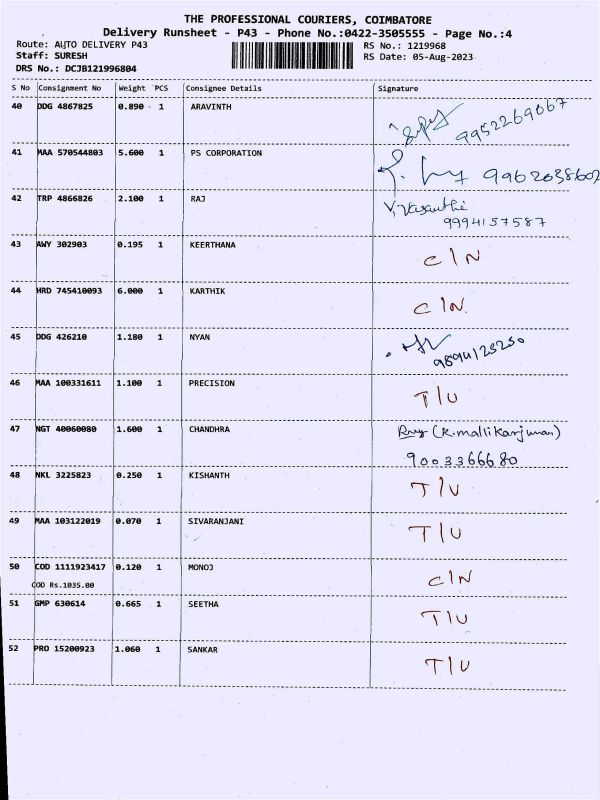 THE PROFESSIONAL COURIERS, COIMBATORE
Delivery Runsheet - P43 - Phone No.:0422-3505555 - Page No.:4
Route: AUTO DELIVERY P43 RS No.: 1219968
Staff: SURESH RS Date: 05-Aug-2023
DRS No.: DCJB121996804
S No Consignment No Weight PCS Consignee Details Signature
40 DDG 4867825 0.890 1 ARAVINTH 9952269067
41 MAA 570544803 5.600 1 PS CORPORATION 9962038602
42 TRP 4866826 2.100 1 RAJ V.Vasanthi
9994157587
43 AWY 302903 0.195 1 KEERTHANA C/N
44 HRD 745410093 6.000 1 KARTHIK C/N
45 DDG 426210 1.180 1 NYAN
46 MAA 100331611 1.100 1 PRECISION T/U
47 NGT 40060080 1.600 1 CHANDHRA (K.mallikarjunan)
9003366680
48 NKL 3225823 0.250 1 KISHANTH T/U
49 MAA 103122019 0.070 1 SIVARANJANI T/U
50 COD 1111923417 0.120 1 MONOJ C/N
COD Rs.1035.00
51 GMP 630614 0.665 1 SEETHA T/U
52 PRO 15200923 1.060 1 SANKAR T/U